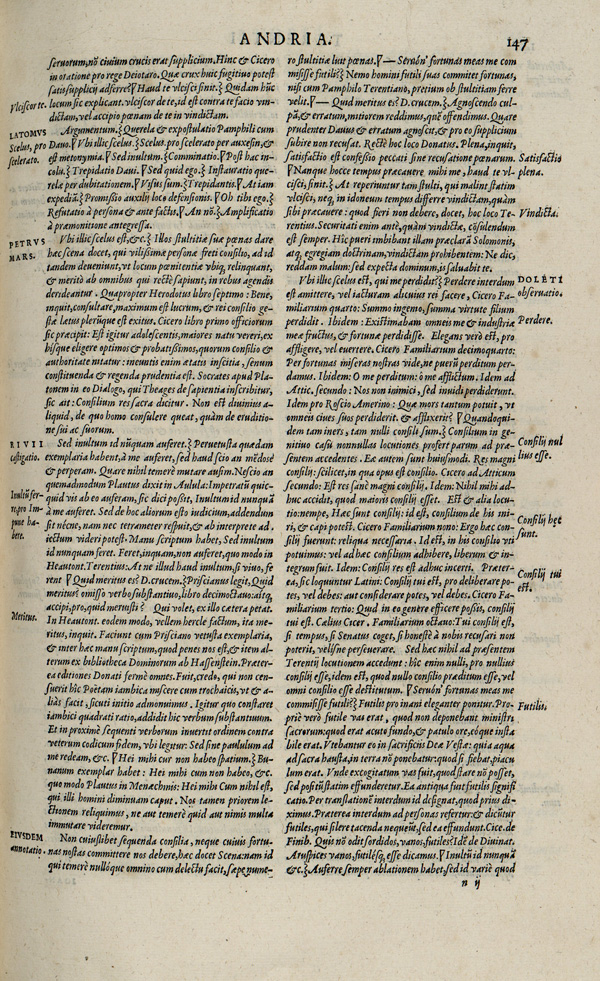 ANDRIA. 147
seruorum, nō ciuium crucis erat supplicium. Hinc & Cicero
in oratione pro rege Deiotaro. Quæ crux huic fugitiuo potest
satis supplicij adferre? Haud te vlcisci sinit. Quidam hūc
Vlciscor te. locum sic explicant. vlciscor de te, id est contra te facio vin-
dictam, vel accipio pœnam de te in vindictam.
LATOMVS Argumentum. Querela & expostulatio Pamphili cum
Scelus, pro scelerato. Dauo. Vbi illic scelus. Scelus pro scelerato per auxesin, &
est metonymia. Sed inultum. Comminatio. Post hac in-
colū. Trepidatio Daui. Sed quid ego. Instauratio que-
rela per dubitationem. Visus sum. Trepidantis. At iam
expediā. Promissio auxilij loco defensionis. Oh tibi ego.
Refutatio à persona & ante factis. An nō. Amplificatio
à præmonitione antegressa.
PETRVS MARS. Vbi illic scelus est, &c. Illos stultitiæ suæ pœnas dare
hæc scena docet, qui vilissimæ personæ freti consilio, ad id
tandem deueniunt, vt locum pœnitentiæ vbiq; relinquant,
& merito ab omnibus qui recte sapiunt, in rebus agendis
derideantur. Quapropter Herodotus libro septimo: Bene,
inquit, consultare, maximum est lucrum, & rei consilio ge-
stæ lætus plerūque est exitus. Cicero libro primo officiorum
sic præcipit: Est igitur adolescentis, maiores natu vereri, ex
hisque eligere optimos & probatissimos, quorum consilio &
authoritate nitatur: ineuntis enim ætatis inscitia, senum
constituenda & regenda prudentia est. Socrates apud Pla-
tonem in eo Dialogo, qui Theages de sapientia inscribitur,
sic ait: Consilium res sacra dicitur. Non est diuinius a-
liquid, de quo homo consulere queat, quàm de eruditio-
ne sui ac suorum.
RIVII castigatio. Sed inultum id nūquam auferet. Peruetusta quædam
exemplaria habent, à me auferet, sed haud scio an mēdosè
& perperam. Quare nihil temerè mutare ausim. Nescio an
quemadmodum Plautus dixit in Aulula: Impetratū quic-
Inultū ferre, pro Impune habere. quid vis ab eo auferam, sic dici possit, Inultum id nunquā
à me auferet. Sed de hoc aliorum esto iudicium, addendum
sit nécne, nam nec tetrameter respuit, & ab interprete ad-
iectum videri potest. Manu scriptum habet, Sed inultum
id nunquam feret. Feret, inquam, non auferet, quo modo in
Heautont. Terentius: At ne illud haud inultum, si viuo, fe-
rent Quid meritus es? D. crucem. Priscianus legit, Quid
meritu's? omisso verbo substantiuo, libro decimoctauo: alıq;
accipi, pro, quid meruisti? Qui volet, ex illo cætera petat.
Meritus. In Heautont. eodem modo, vellem hercle factum, ita me-
ritus, inquit. Faciunt cum Prisciano vetusta exemplaria,
& inter hæc manu scriptum, quod penes nos est, & item al-
terum ex bibliotheca Dominorum ab Hassenstein. Præter-
ea editiones Donati fermè omnes. Fuit, credo, qui non cen-
suerit hîc Poëtam iambica miscere cum trochaicis, vt & a-
liàs facit, sicuti initio admonuimus. Igitur quo constaret
iambici quadrati ratio, addidit hîc verbum substantiuum.
Et in proximè sequenti verborum inuertit ordinem contra
veterum codicum fidem, vbi legitur: Sed sine paululum ad
me redeam, &c. Hei mihi cur non habeo spatium. Bu-
nanum exemplar habet: Hei mihi cum non habeo, &c.
quo modo Plautus in Menæchmis: Hei mihi Cum nihil est,
qui illi homini diminuam caput. Nos tamen priorem le-
ctionem reliquimus, ne aut temerè quid aut nimis multa
immutare videremur.
EIVSDEM annotatio. Non cuiuslibet sequenda consilia, neque cuiuis fortu-
nas nostras committere nos debere, hæc docet Scena: nam id
qui temerè nullóque omnino cum delectu facit, sæpenume-
ro stultitiæ luit pœnas. — Seruón' fortunas meas me com
misisse futili? Nemo homini futili suas commitet fortunas,
nisi cum Pamphilo Terentiano, pretium ob stultitiam ferre
velit. — Quid meritus es? D. crucem. Agnoscendo cul-
pā, & erratum, mitiorem reddimus, quē offendimus. Quare
prudenter Dauus & erratum agnoscit, & pro eo supplicium
subire non recusat. Rectè hoc loco Donatus. Plena, inquit,
Satisfactio plena. satisfactio est confessio peccati sine recusatione pœnarum.
Nanque hocce tempus præcauere mihi me, haud te vl-
cisci, sinit. At reperiuntur tam stulti, qui malint statim
vlcisci, neq; in idoneum tempus differre vindictam, quàm
Vindicta. sibi præcauere: quod fieri non debere, docet, hoc loco Te-
rentius. Securitati enim ante, quàm vindictæ, cōsulendum
est semper. Hîc pueri imbibant illam præclarā Solomonis,
atq; egregiam doctrinam, vindictam prohibentem: Ne dic,
reddam malum: sed expecta dominum, is saluabit te.
DOLETI obseruatio. Vbi illic scelus est, qui me perdidit? Perdere interdum
est amittere, vel iacturam alicuius rei facere, Cicero Fa-
miliarium quarto: Summo ingenio, summa virtute filium
Perdere. perdidit. Ibidem: Existimabam omneis me & industriæ
meæ fructus, & fortunæ perdidisse. Elegans verò est, pro
affligere, vel euertere. Cicero Familiarium decimoquarto:
Per fortunas miseras nostras vide, ne puerū perditum per-
damus. Ibidem: O me perditum: ò me afflictum. Idem ad
Artic. secundo: Nos non inimici, sed inuidi perdiderunt.
Idem pro Roscio Amerino: Quæ mors tantum potuit, vt
omneis ciues suos perdiderit, & afflixerit? Quandoqui-
dem tam iners, tam nulli consili sum. Consilium in ge-
Consilij nullius esse. nitiuo casu nonnullas locutiones profert parum ad præ-
sentem accedentes. Eæ autem sunt huiusmodi. Res magni
consilij: scilicet, in qua opus est consilio. Cicero ad Atticum
secundo: Est res sanè magni consilij. Idem: Nihil mihi ad-
huc accidit, quod maioris consilij esset. Est & alia locu-
tio: nempe, Hæc sunt consilij: id est, consilium de his mi-
Consilij hęc sunt. ri, & capi potest. Cicero Familiarium nono: Ergo hæc con-
silij fuerunt: reliqua necessaria. Id est, in his consilio vti
potuimus: vel ad hæc consilium adhibere, liberum & in-
tegrum fuit. Idem: Consilij res est adhuc incerti. Præter-
Consilij tui est. ea, sic loquuntur Latini: Consilij tui est, pro deliberare po-
tes, vel debes: aut considerare potes, vel debes. Cicero Fa-
miliarium tertio: Quid in eo genere efficere possis, consilij
tui est. Cælius Cicer. Familiarium octauo: Tui consilij est,
si tempus, si Senatus coget, si honestè à nobis recusari non
poterit, velísne perseuerare. Sed hæc nihil ad præsentem
Terentij locutionem accedunt: hîc enim nulli, pro nullius
consilij esse, idem est, quod nullo consilio præditum esse, vel
omni consilio esse destitutum. Seruón' fortunas meas me
commisisse futili? Futilis pro inani eleganter ponitur. Pro-
Futilis. priè verò futile vas erat, quod non deponebant ministri
sacrorum: quod erat acuto fundo, & patulo ore, eóque insta
bile erat. Vtebantur eo in sacrificiis Deæ Vestæ: quia aqua
ad sacra hausta, in terra nō ponebatur: quod si fiebat, piacu
lum erat. Vnde excogitatum vas fuit, quod stare nō posset,
sed positū statim effunderetur. Ea antiqua fuit futilis signifi
catio. Per translationē interdum id designat, quod prius di-
ximus. Præterea interdum ad personas refertur: & dicūtur
futiles, qui silere tacenda nequeūt, sed ea effundunt. Cice. de
Finib. Quis nō odit sordidos, vanos, futiles? Idē de Diuinat.
Atuspices vanos, futilésq; esse dicamus. Inultū id nunquā
&c. Auferre semper ablationem habet, sed id variè quod
n ij